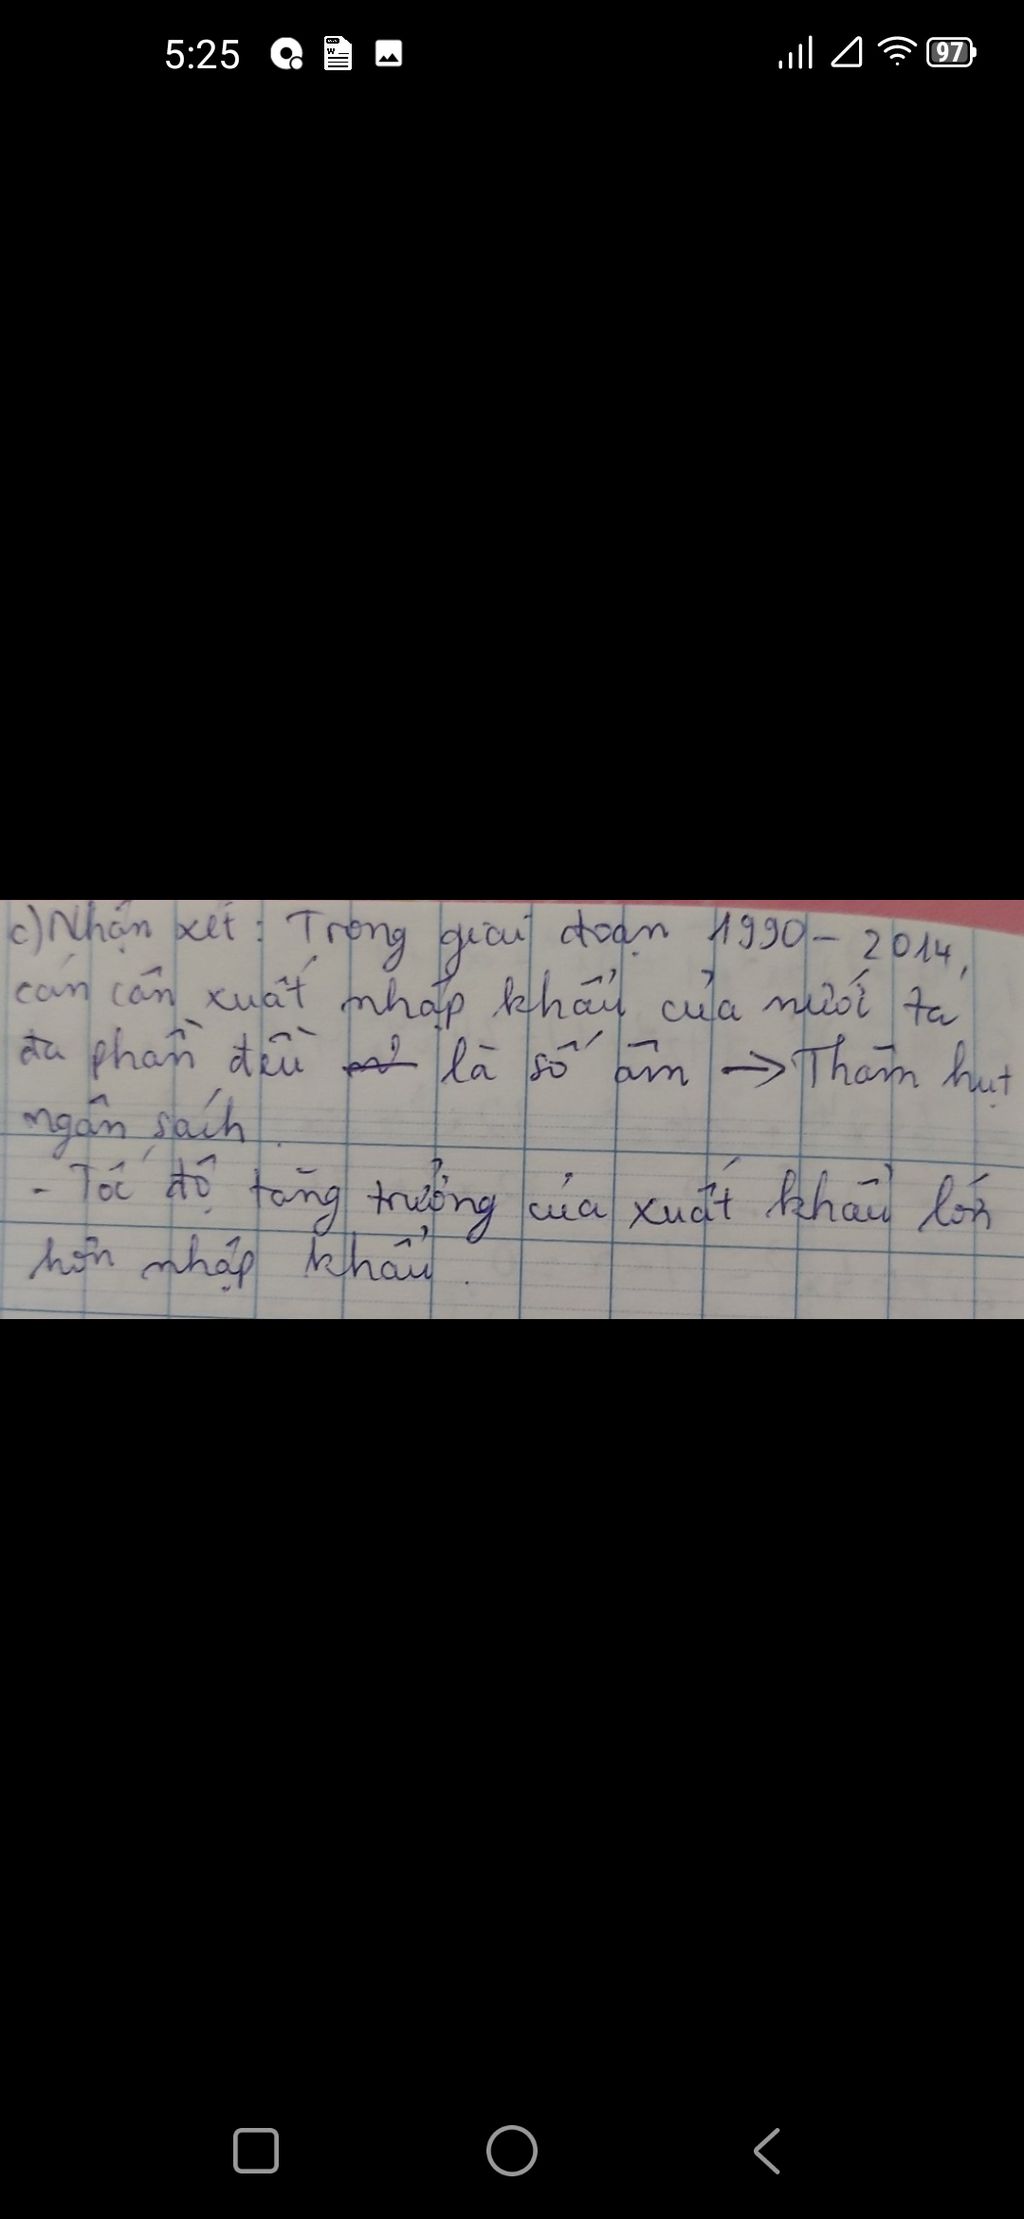 5:25
97
c) Nhận xét: Trong giai đoạn 1990 - 2014,
cán cân xuất nhập khẩu của nước ta
đa phần đều là số âm → Thâm hụt
ngân sách.
- Tốc độ tăng trưởng của xuất khẩu lớn
hơn nhập khẩu.